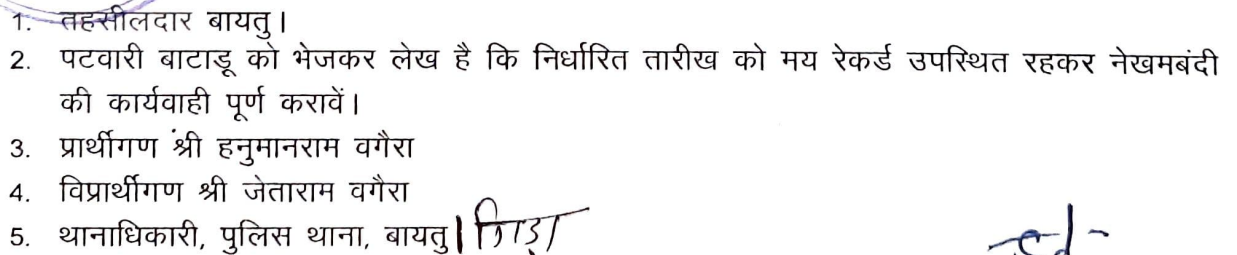 1. तहसीलदार बायतु।
2. पटवारी बाटाडू को भेजकर लेख है कि निर्धारित तारीख को मय रेकर्ड उपस्थित रहकर नेखमबंदी
की कार्यवाही पूर्ण करावें।
3. प्रार्थीगण श्री हनुमानराम वगैरा
4. विप्रार्थीगण श्री जेताराम वगैरा
5. थानाधिकारी, पुलिस थाना, बायतु। गिड़ा